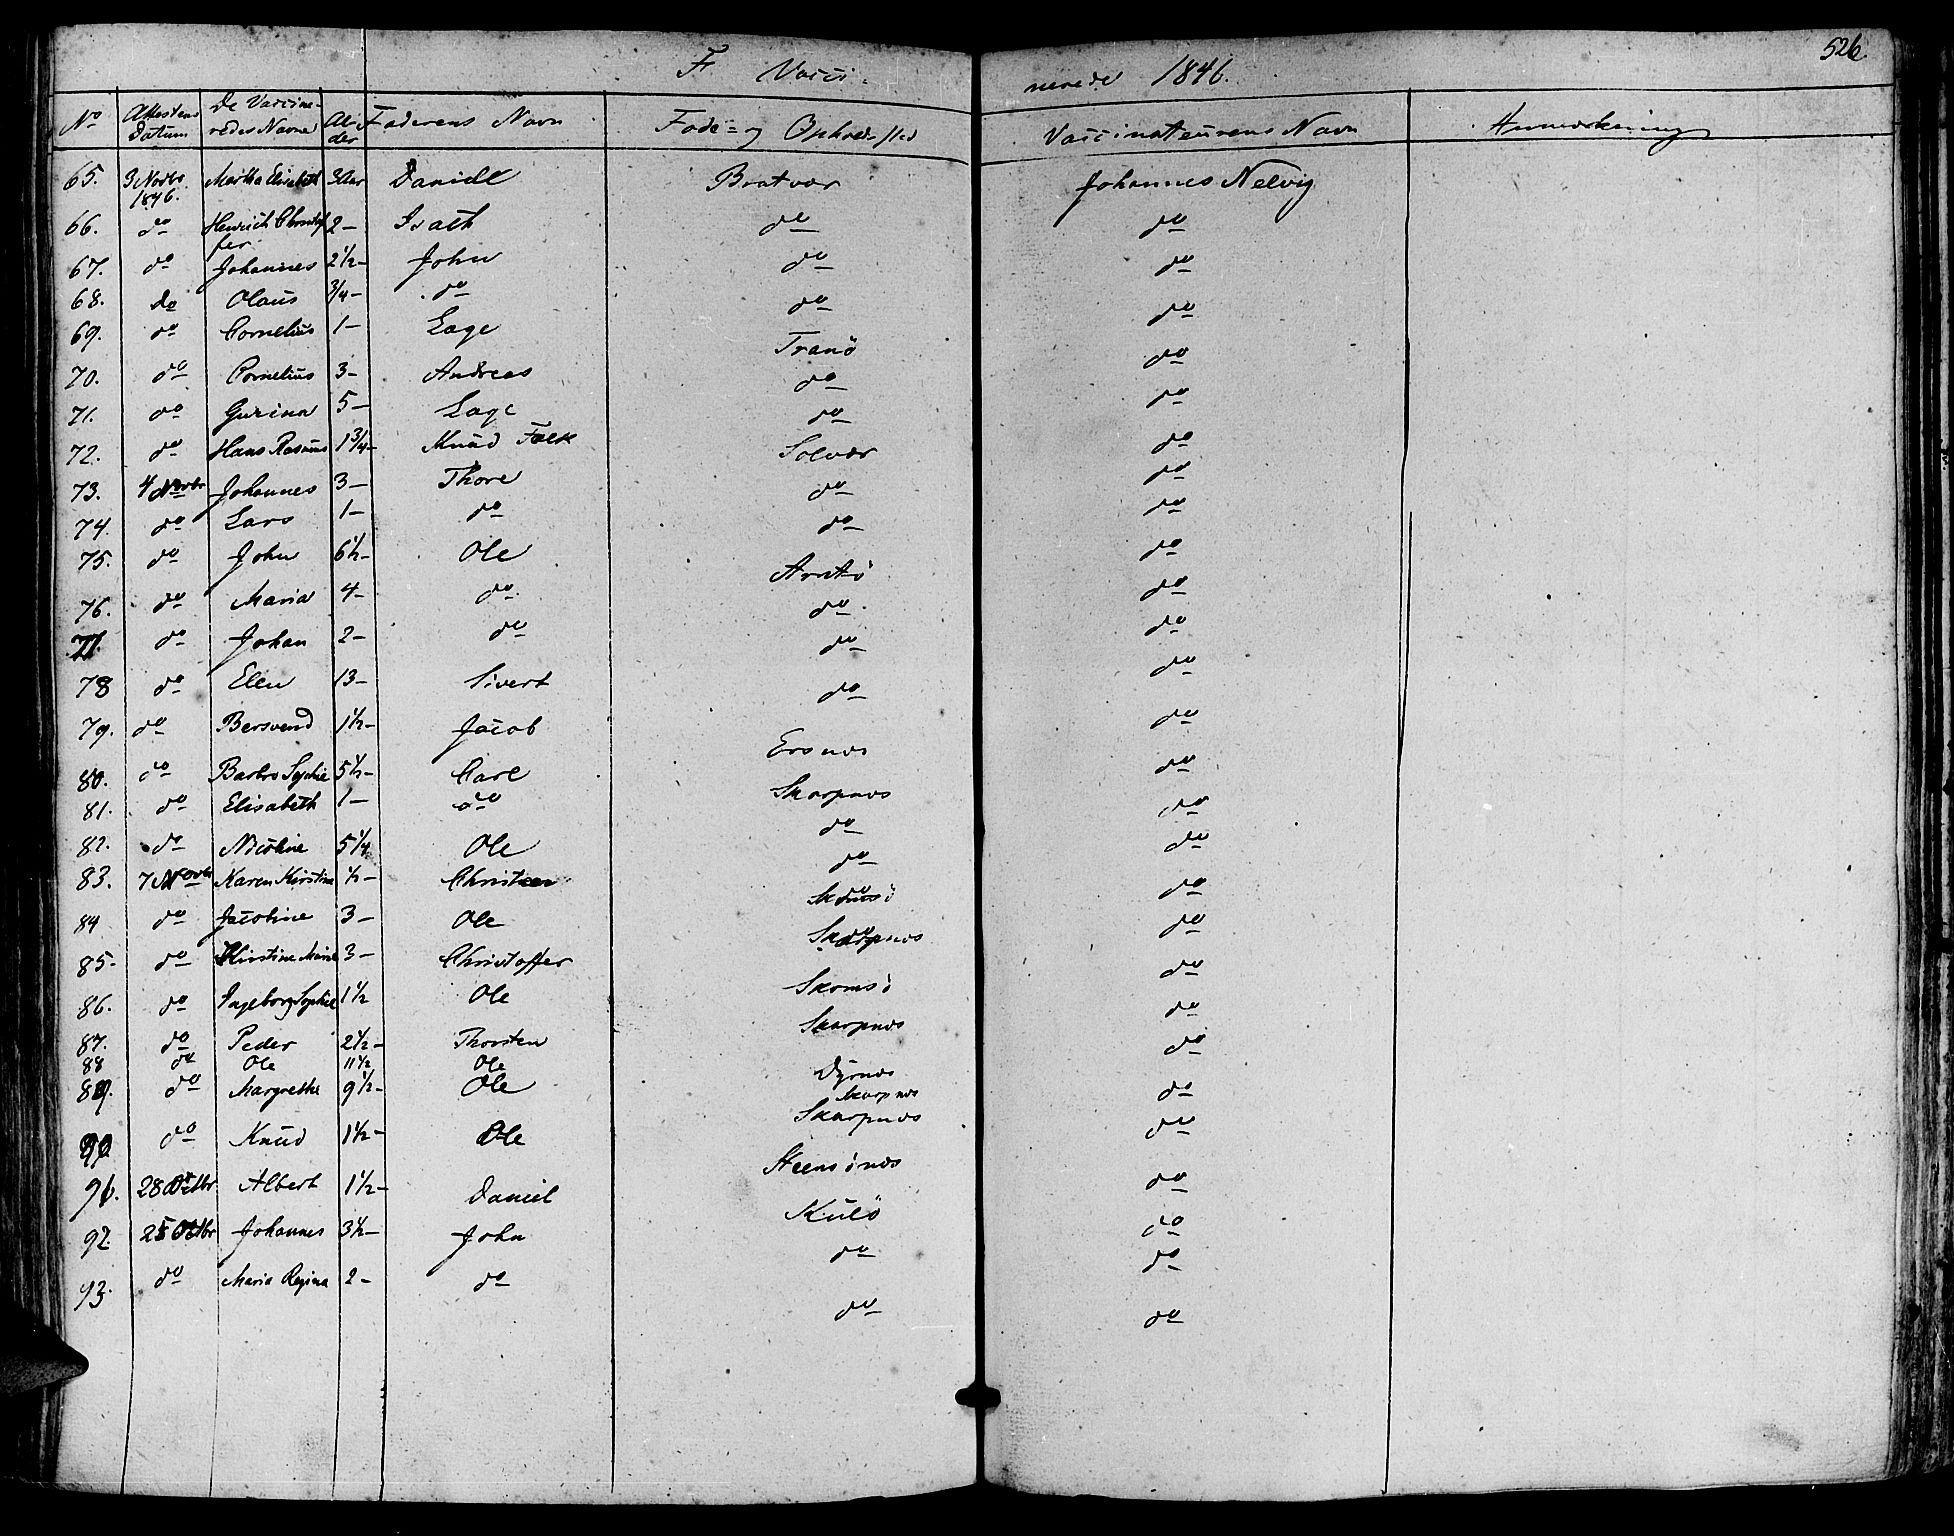 526
F Vacci-
nerede 1846.
No Attestens Datum De Vaccineredes Navne Alder Faderens Navn Føde- og Opholds sted Vaccinateurens Navn Anmærkning
65. 3 Novbr 1846. Martha Elisabeth 3 Aar Daniel Bratvær Johannes Nelvig
66. do Henrich Christoffer 2 - Isach do do
67. do Johannes 2 1/2 - John do do
68. do Olaus 3/4 - do do do
69. do Cornelius 1 - Lage Tranö do
70. do Cornelius 3 - Andreas do do
71. do Gurina 5 - Lage do do
72. do Hans Rasmus 1 3/4 - Knud Falk Solvær do
73. 4 Novbr Johannes 3 - Thore do do
74. do Lars 1 - do do do
75. do John 6 1/2 - Ole Arstö do
76. do Maria 4 - do do do
77. do Johan 2 - do do do
78 do Ellen 13 - Sivert do do
79. do Bersvend 1 1/2 - Jacob Ersnæs do
80. do Barbro Sophie 5 1/2 - Carl Skarpnæs do
81. do Elisabeth 1 - do do do
82. do Nicoline 5 1/4 Ole do do
83. 7 Novbr Karen Kirstine 1/2 - Christen Skomsö do
84 do Jacobine 3 - Ole Skarpnæs do
85. do Kirstine Marie 3 - Christoffer Skomsö do
86. do Ingeborg Sophie 1 1/2 Ole Skarpnæs do
87. do Peder 2 1/2 - Thorsten Dyrnæs do
88 do Ole 11 1/2 Ole Skarpnæs
89. do Margrethe 9 1/2 - Ole Skarpnæs do
90 do Knud 1 1/2 - Ole Steensönæs do
91. 28 Octbr Albert 1 1/2 - Daniel Kulö do
92. 25 Octbr Johannes 3 1/2 - John do do
93. do Maria Regina 2 - do do do
do